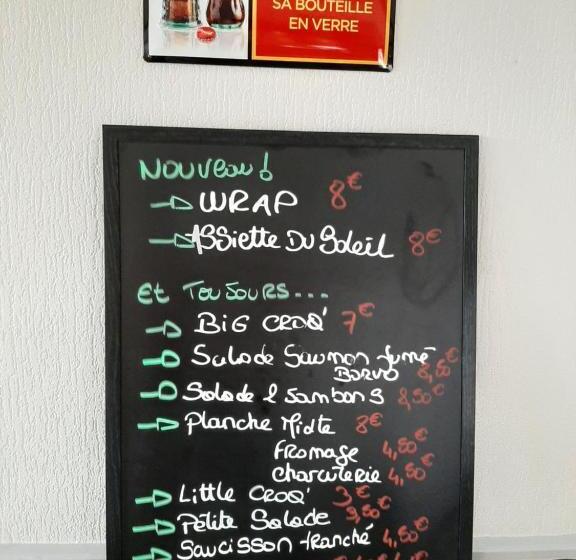 SA BOUTEILLE
EN VERRE
NOUVEAU !
WRAP 8€
ASSiette DU Soleil 8€
et TOUJOURS...
BiG CROQ' 7€
Salade Saumon fumé
BORVO 8,50€
Salade 2 Jambons 8,50€
Planche Mixte 8€
Fromage 4,50€
charcuterie 4,50€
Little CROQ' 3€
Petite Salade 3,50€
Saucisson tranché 4,50€